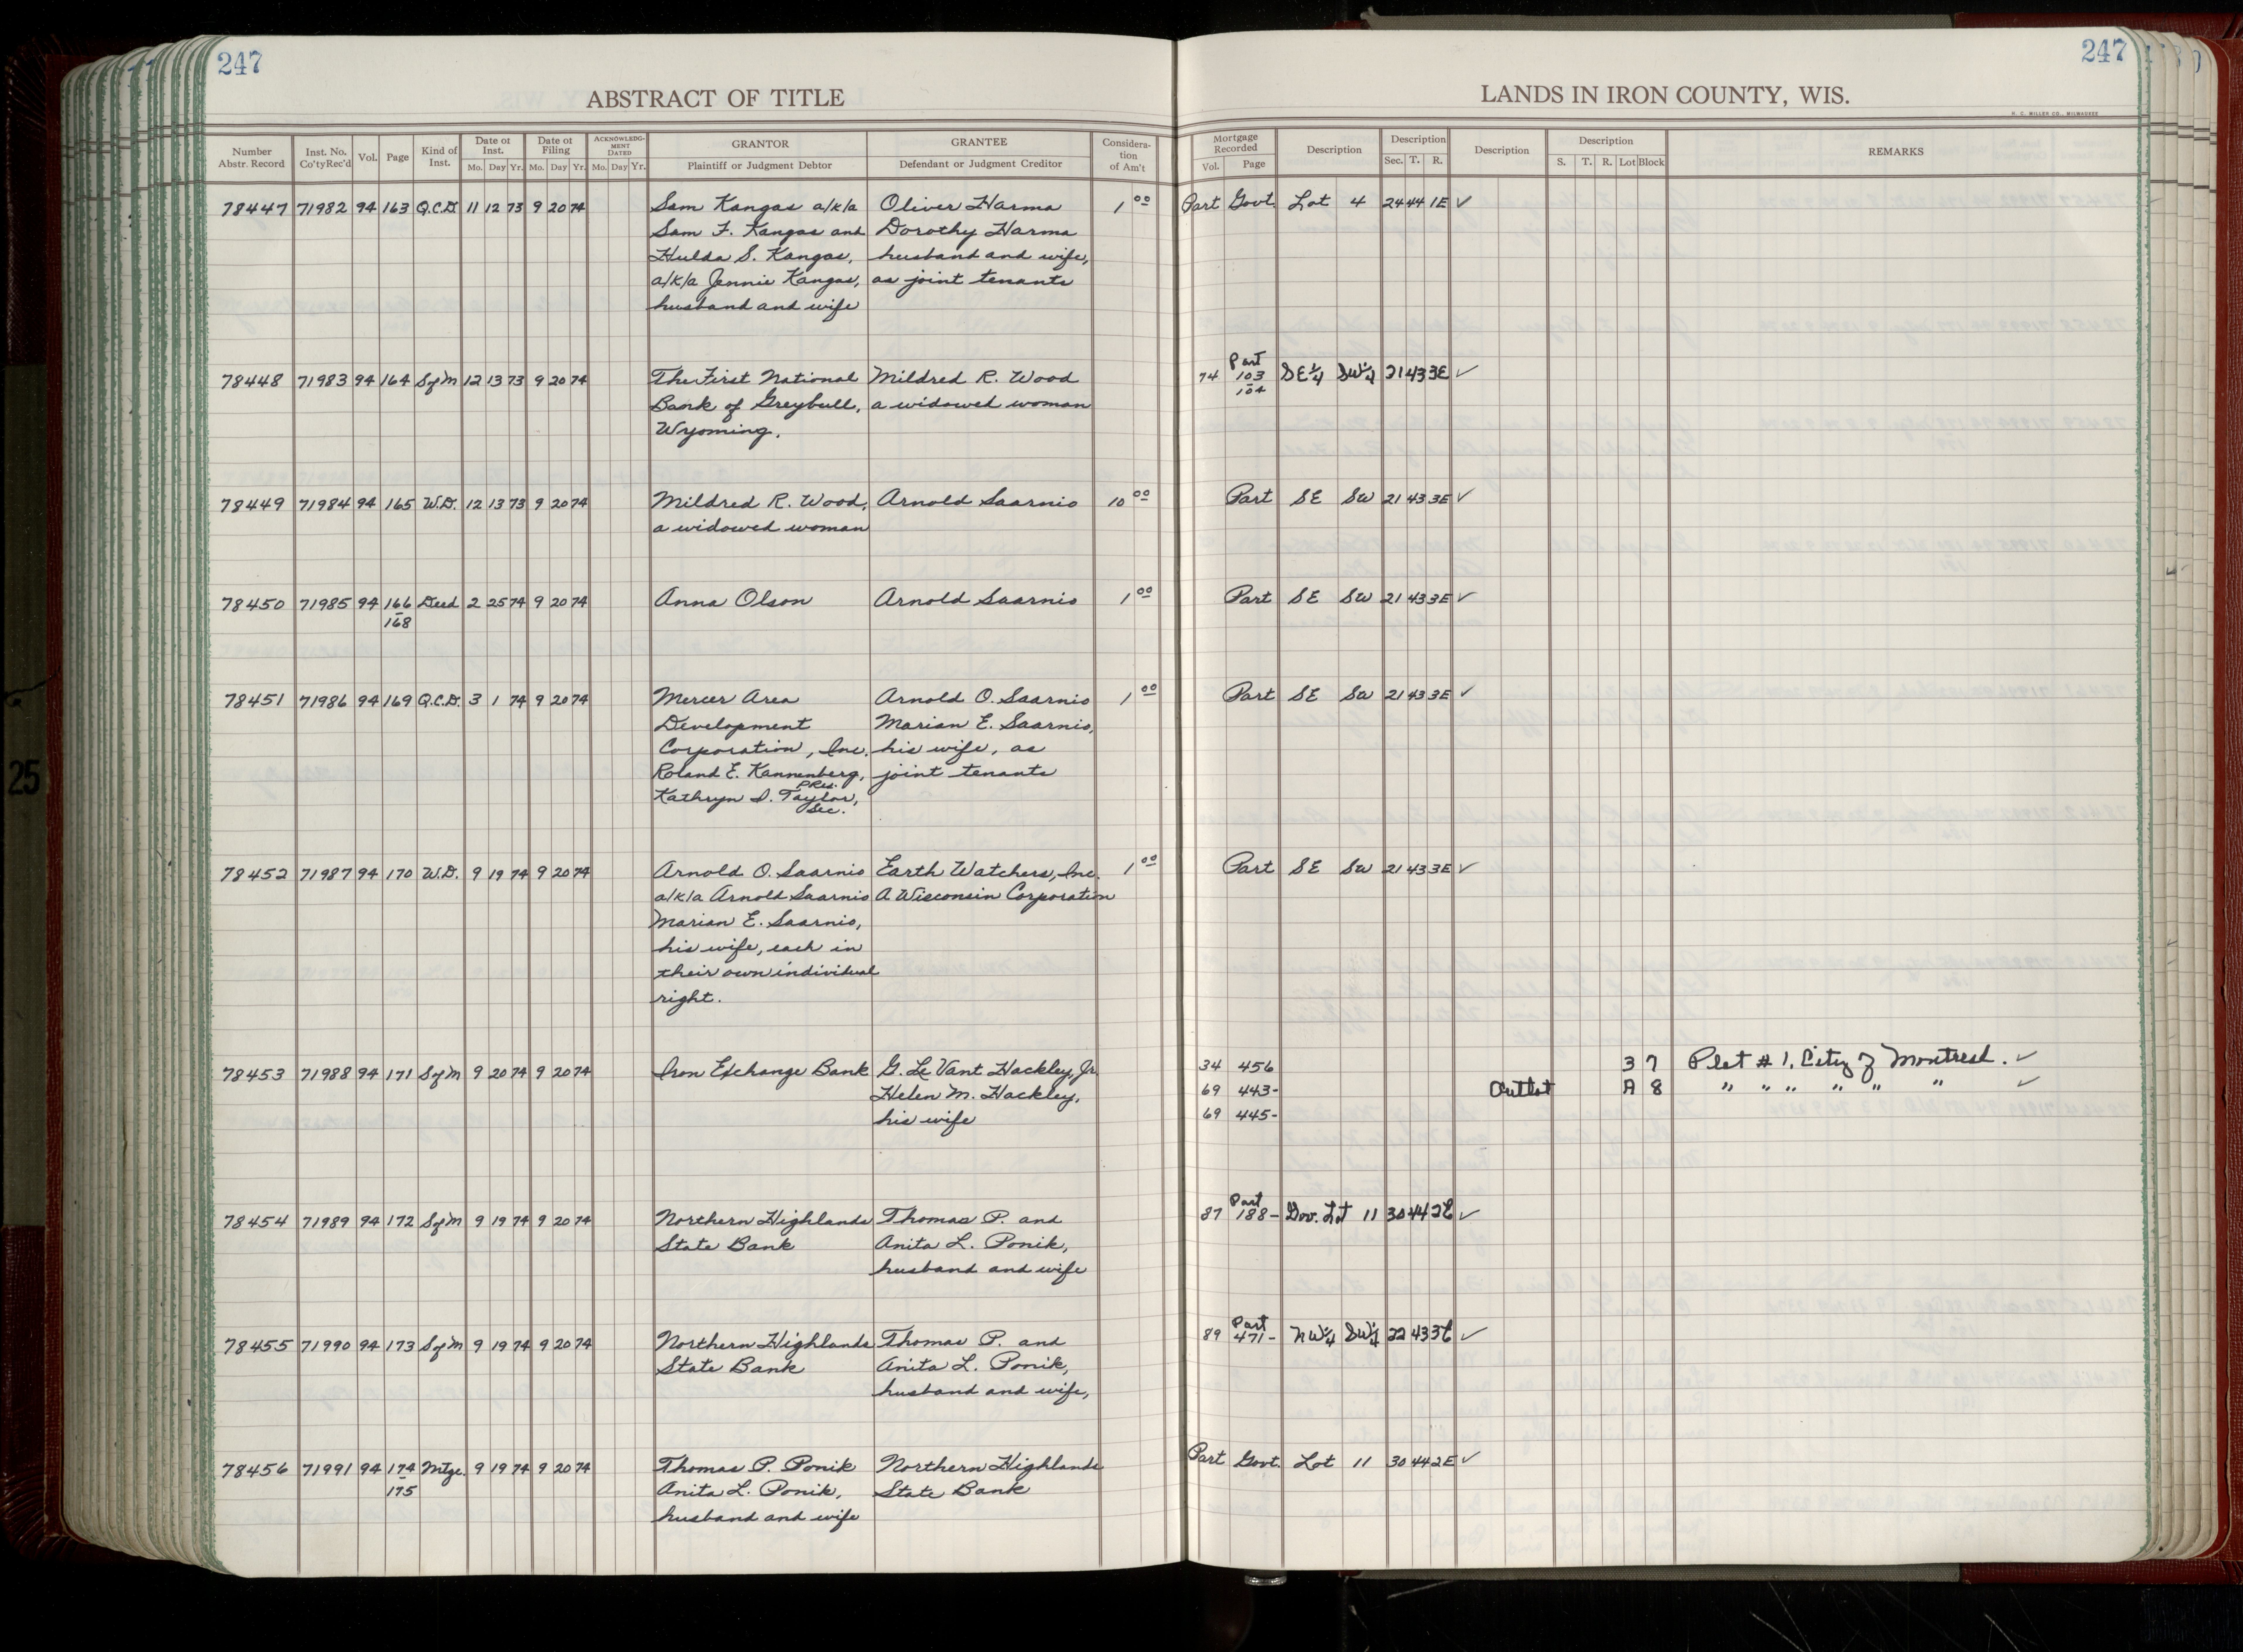 247
247
ABSTRACT OF TITLE
LANDS IN IRON COUNTY, WIS.
H. C. MILLER CO., MILWAUKEE
Number Abstr. Record | Inst. No. Co'ty Rec'd | Vol. | Page | Kind of Inst. | Date of Inst. Mo. Day Yr. | Date of Filing Mo. Day Yr. | ACKNOWLEDGMENT DATED Mo. Day Yr. | GRANTOR Plaintiff or Judgment Debtor | GRANTEE Defendant or Judgment Creditor | Consideration of Am't | Mortgage Recorded Vol. Page | Description | Description Sec. T. R. | Description | Description S. T. R. Lot Block | REMARKS
78447 71982 94 163 Q.C.D. 11 12 73 9 20 74 Sam Kangas a/k/a Oliver Harma 1 00 Part Govt. Lot 4 24 44 1E ✓
Sam F. Kangas and Dorothy Harma
Hulda S. Kangas, husband and wife,
a/k/a Jennie Kangas, as joint tenants
husband and wife
Part
78448 71983 94 164 S of M 12 13 73 9 20 74 The First National Mildred R. Wood 74 103 SE¼ SW¼ 21 43 3E ✓
-
104
Bank of Greybull, a widowed woman
Wyoming.
78449 71984 94 165 W.D. 12 13 73 9 20 74 Mildred R. Wood, Arnold Saarnio 10 00 Part SE SW 21 43 3E ✓
a widowed woman
78450 71985 94 166 Deed 2 25 74 9 20 74 Anna Olson Arnold Saarnio 1 00 Part SE SW 21 43 3E ✓
-
168
78451 71986 94 169 Q.C.D. 3 1 74 9 20 74 Mercer Area Arnold O. Saarnio 1 00 Part SE SW 21 43 3E ✓
Development Marian E. Saarnio,
Corporation, Inc. his wife, as
Roland E. Kannenberg, joint tenants
Pres.
Kathryn D. Taylor,
Sec.
78452 71987 94 170 W.D. 9 19 74 9 20 74 Arnold O. Saarnio Earth Watchers, Inc. 1 00 Part SE SW 21 43 3E ✓
a/k/a Arnold Saarnio A Wisconsin Corporation
Marian E. Saarnio,
his wife, each in
their own individual
right.
78453 71988 94 171 S of M 9 20 74 9 20 74 Iron Exchange Bank G. Le Vant Hackley, Jr. 34 456 3 7 Plat # 1, City of Montreal. ✓
Helen M. Hackley, 69 443- Outlot A 8 " " " " " " ✓
his wife 69 445-
Part
78454 71989 94 172 S of M 9 19 74 9 20 74 Northern Highlands Thomas P. and 87 188- Gov. Lot 11 30 44 2E ✓
State Bank Anita L. Ponik,
husband and wife
Part
78455 71990 94 173 S of M 9 19 74 9 20 74 Northern Highlands Thomas P. and 89 471- NW¼ SW¼ 22 43 3E ✓
State Bank Anita L. Ponik,
husband and wife,
78456 71991 94 174 Mtge. 9 19 74 9 20 74 Thomas P. Ponik Northern Highlands Part Govt. Lot 11 30 44 2E ✓
-
175
Anita L. Ponik, State Bank
husband and wife
25